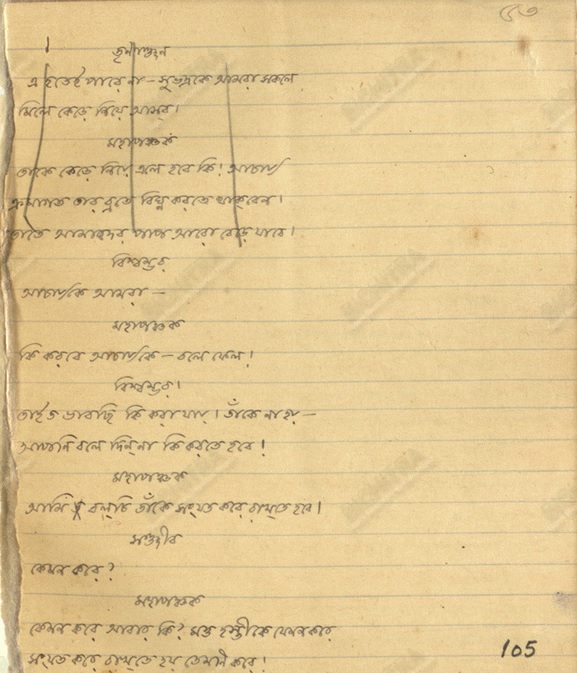 ৫৩
তৃণাঞ্জন
এ হতেই পারে না — সুভদ্রকে আমরা সকলে
মিলে কেড়ে নিয়ে আসব।
মহাপঞ্চক
তাকে কেড়ে নিয়ে এলে হবে কি! আচার্য্য
ক্রমাগত তার ব্রতে বিঘ্ন করতে থাক্‌বেন।
তাতে আমাদের পাপ আরো বেড়ে যাবে।
বিশ্বম্ভর
আচার্য্যকে আমরা —
মহাপঞ্চক
কি করবে আচার্য্যকে — বলে ফেল!
বিশ্বম্ভর।
তাইত ভাবছি কি করা যায়। তাঁকে না হয় —
আপনি বলে দিন্‌ না কি করতে হবে!
মহাপঞ্চক
আমি বল্‌চি তাঁকে সংযত করে রাখ্‌তে হবে।
সঞ্জীব
কেমন করে?
মহাপঞ্চক
কেমন করে আবার কি? মত্ত হস্তীকে যেমন করে
সংযত করে রাখ্‌তে হয় তেমনি করে!
105